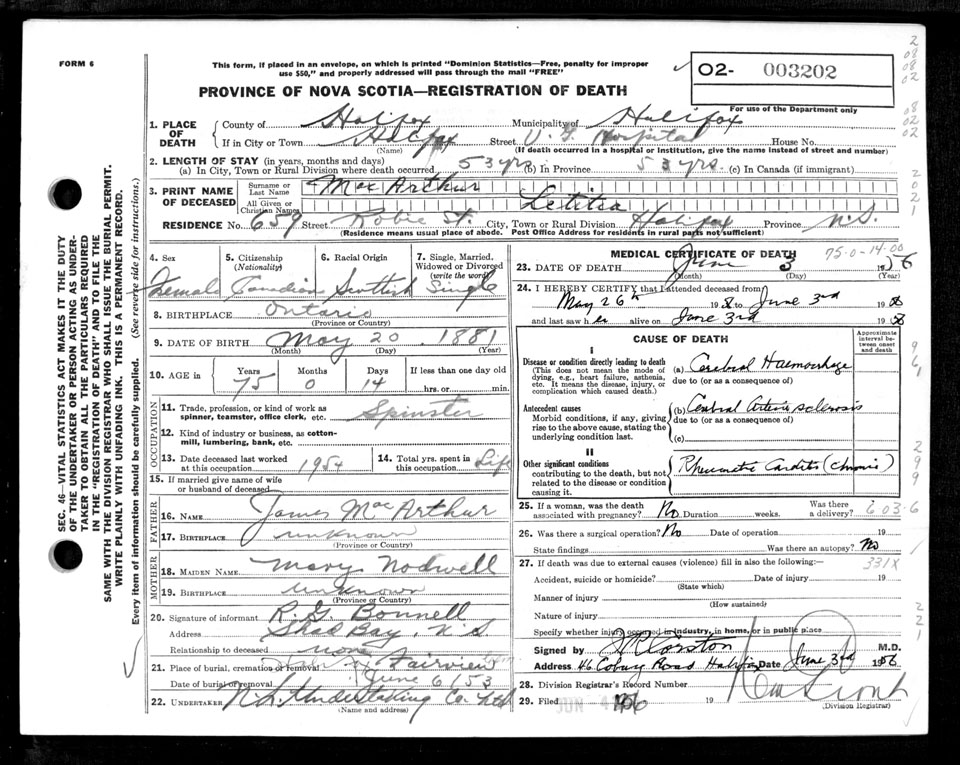 FORM 6
This form, if placed in an envelope, on which is printed "Dominion Statistics—Free, penalty for improper
use $50," and properly addressed will pass through the mail "FREE"
PROVINCE OF NOVA SCOTIA—REGISTRATION OF DEATH
O2- 003202
For use of the Department only
1. PLACE OF DEATH
County of Halifax Municipality of Halifax
If in City or Town Halifax Street V. G. Hospital House No.
(Name) (If death occurred in a hospital or institution, give the name instead of street and number)
2. LENGTH OF STAY (in years, months and days)
(a) In City, Town or Rural Division where death occurred 53 yrs. (b) In Province 53 yrs. (c) In Canada (if immigrant)
3. PRINT NAME OF DECEASED
Surname or Last Name Mac Arthur
All Given or Christian Names Letitia
RESIDENCE No. 659 Street Robie St. City, Town or Rural Division Halifax Province N.S.
(Residence means usual place of abode. Post Office Address for residents in rural parts not sufficient)
4. Sex Female
5. Citizenship (Nationality) Canadian
6. Racial Origin Scottish
7. Single, Married, Widowed or Divorced (write the word) Single
8. BIRTHPLACE Ontario
(Province or Country)
9. DATE OF BIRTH May 20 1881
(Month) (Day) (Year)
10. AGE in Years Months Days If less than one day old
75 0 14 hrs. or min.
OCCUPATION
11. Trade, profession, or kind of work as spinner, teamster, office clerk, etc. Spinster
12. Kind of industry or business, as cotton-mill, lumbering, bank, etc.
13. Date deceased last worked at this occupation 1954
14. Total yrs. spent in this occupation Life
15. If married give name of wife or husband of deceased
FATHER
16. NAME James Mac Arthur
17. BIRTHPLACE unknown
(Province or Country)
MOTHER
18. MAIDEN NAME Mary Nodwell
19. BIRTHPLACE unknown
(Province or Country)
20. Signature of informant R. G. Bonnell
Address Shad Bay, N.S
Relationship to deceased none
21. Place of burial, cremation or removal Fairview
Date of burial or removal June 6/53
22. UNDERTAKER N.S. Undertaking Co. Ltd
(Name and address)
MEDICAL CERTIFICATE OF DEATH
75-0-14-00
23. DATE OF DEATH June 3 1956
(Month) (Day) (Year)
24. I HEREBY CERTIFY that I attended deceased from
May 26th to June 3rd
and last saw her alive on June 3rd
CAUSE OF DEATH
Approximate interval between onset and death
I
Disease or condition directly leading to death
(This does not mean the mode of dying, e.g., heart failure, asthenia, etc. It means the disease, injury, or complication which caused death.)
(a) Cerebral Haemorrhage
due to (or as a consequence of)
Antecedent causes
Morbid conditions, if any, giving rise to the above cause, stating the underlying condition last.
(b) Cerebral Arteriosclerosis
due to (or as a consequence of)
(c)
II
Other significant conditions
contributing to the death, but not related to the disease or condition causing it.
Rheumatic Carditis (chronic)
25. If a woman, was the death associated with pregnancy? No Duration weeks. Was there a delivery?
603-6
26. Was there a surgical operation? No Date of operation 19
State findings Was there an autopsy? No
27. If death was due to external causes (violence) fill in also the following:—
331X
Accident, suicide or homicide? Date of injury 19
(State which)
Manner of injury
(How sustained)
Nature of injury
Specify whether injury occurred in industry, in home, or in public place
Signed by M.D.
Address 46 Coburg Road Halifax Date June 3rd 1956
28. Division Registrar's Record Number
29. Filed JUN 19
(Division Registrar)
SEC. 46—VITAL STATISTICS ACT MAKES IT THE DUTY
OF THE UNDERTAKER OR PERSON ACTING AS UNDER-
TAKER TO OBTAIN ALL THE PARTICULARS REQUIRED
IN THE "REGISTRATION OF DEATH" AND TO FILE THE
SAME WITH THE DIVISION REGISTRAR WHO SHALL ISSUE THE BURIAL PERMIT.
WRITE PLAINLY WITH UNFADING INK. THIS IS A PERMANENT RECORD.
Every item of information should be carefully supplied. (See reverse side for instructions.)